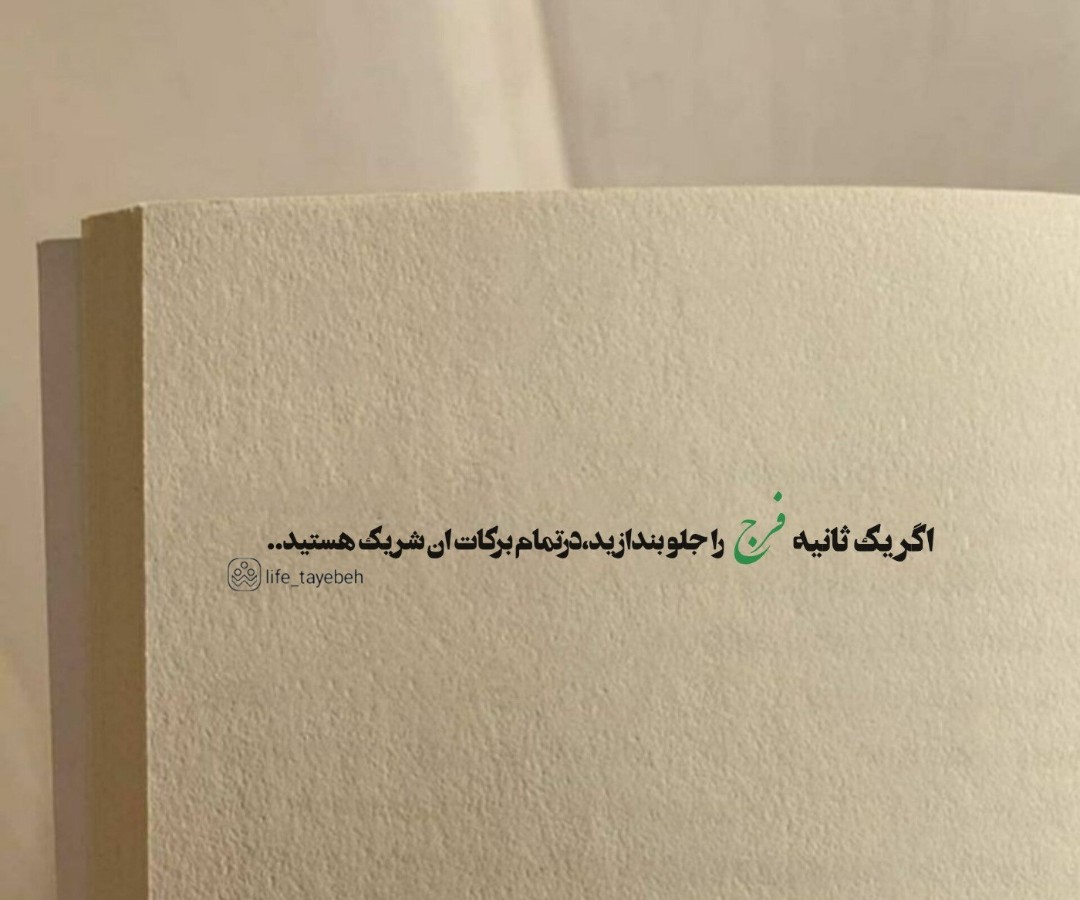 اگر یک ثانیه فرج را جلو بندازید،درتمام برکات ان شریک هستید..
life_tayebeh